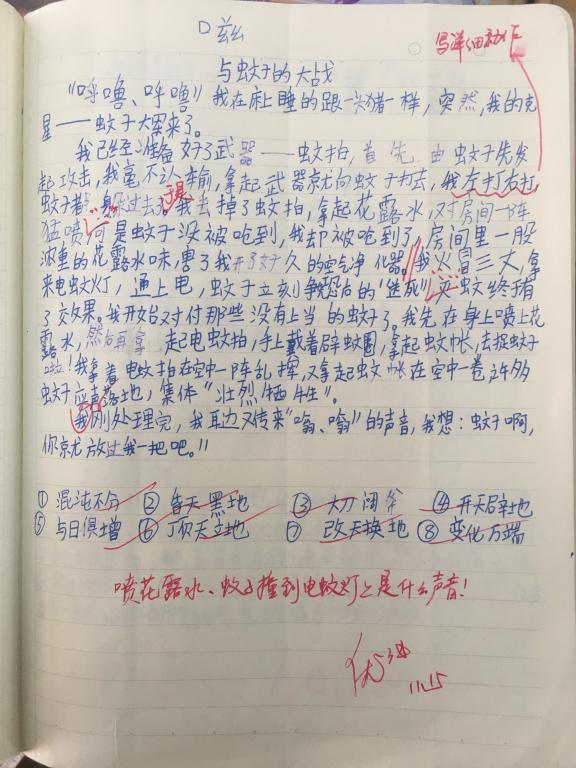 口 兹
写详细动作
与蚊子的大战
"呼噜、呼噜"我在床上睡的跟一头猪一样，突然，我的克
星——蚊子大军来了。
我已经准备好了武器——蚊拍，首先由蚊子先发
起攻击，我毫不认输，拿起武器就向蚊子打去，我左打右打，
蚊子都躲过去了。于是我丢掉了蚊拍，拿起花露水，对房间一阵
猛喷可是蚊子没被呛到，我却被呛到了，房间里一股
浓重的花露水味，害了我开了好久的空气净化器。我火冒三丈，拿
来电蚊灯，通上电，蚊子立刻争先恐后的"继死"灭蚊终于有
了交效果。我开始对付那些没有上当的蚊子了。我先在身上喷上花
露水，然后再拿起电蚊拍，手上戴着辟蚊圈，拿起蚊帐，去捉蚊子
啦！我拿着电蚊拍在空中一阵乱挥，又拿起蚊帐在空中一卷许多
蚊子应声落地，集体"壮烈牺牲"。
我刚处理完，我耳边又传来"嗡、嗡"的声音，我想：蚊子啊，
你就放过我一把吧。!!
① 混沌不分 ② 昏天黑地 ③ 大刀阔斧 ④ 开天辟地
⑤ 与日俱增 ⑥ 顶天立地 ⑦ 改天换地 ⑧ 变化万端
喷花露水、蚊子撞到电蚊灯上是什么声音！
优
11.15